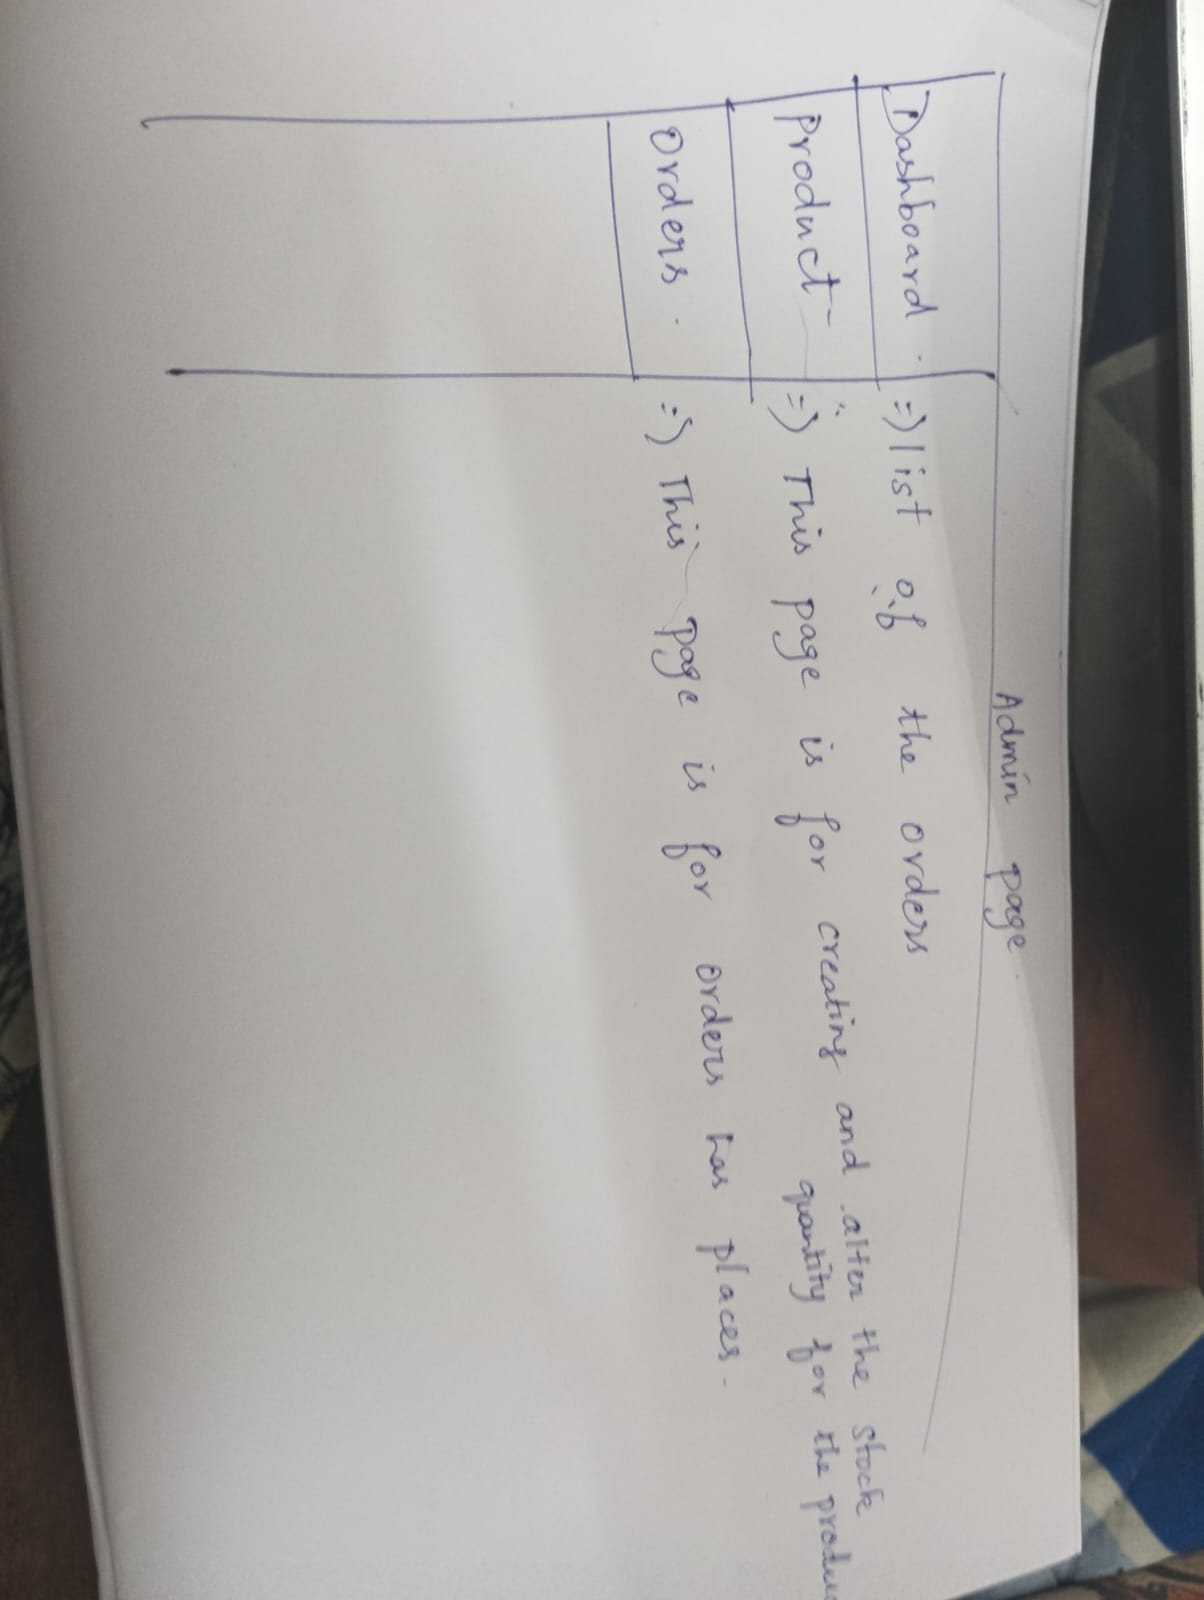 Admin page.
Dashboard. => list of the orders
Product => This page is for creating and alter the stock
quantity for the produc
Orders. => This page is for orders has places.